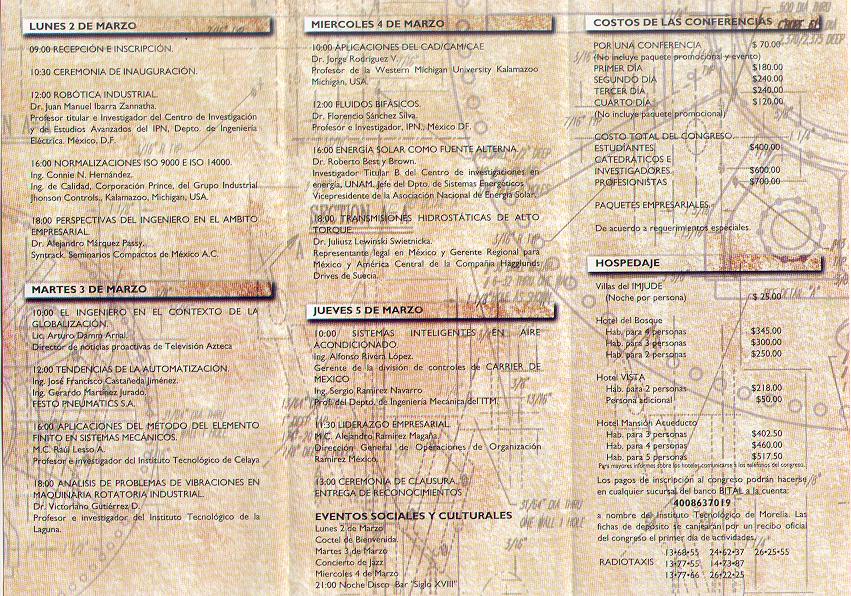 LUNES 2 DE MARZO
09:00 RECEPCIÓN E INSCRIPCIÓN.
10:30 CEREMONIA DE INAUGURACIÓN.
12:00 ROBÓTICA INDUSTRIAL.
Dr. Juan Manuel Ibarra Zannatha.
Profesor titular e Investigador del Centro de Investigación
y de Estudios Avanzados del IPN, Depto. de Ingeniería
Eléctrica. México, D.F.
16:00 NORMALIZACIONES ISO 9000 E ISO 14000.
Ing. Connie N. Hernández.
Ing. de Calidad, Corporación Prince, del Grupo Industrial
Jhonson Controls., Kalamazoo, Michigan, USA.
18:00 PERSPECTIVAS DEL INGENIERO EN EL AMBITO
EMPRESARIAL.
Dr. Alejandro Márquez Passy.
Syntrack. Seminarios Compactos de México A.C.
MARTES 3 DE MARZO
10:00 EL INGENIERO EN EL CONTEXTO DE LA
GLOBALIZACIÓN.
Lic. Arturo Damm Arnal.
Director de noticias proactivas de Televisión Azteca
12:00 TENDENCIAS DE LA AUTOMATIZACIÓN.
Ing. José Francisco Castañeda Jiménez.
Ing. Gerardo Martínez Jurado.
FESTO PNEUMATICS S.A.
16:00 APLICACIONES DEL MÉTODO DEL ELEMENTO
FINITO EN SISTEMAS MECÁNICOS.
M.C. Raúl Lesso A.
Profesor e investigador del Instituto Tecnológico de Celaya
18:00 ANALISIS DE PROBLEMAS DE VIBRACIONES EN
MAQUINARIA ROTATORIA INDUSTRIAL.
Dr. Victoriano Gutiérrez D.
Profesor e investigador del Instituto Tecnológico de la
Laguna.
MIERCOLES 4 DE MARZO
10:00 APLICACIONES DEL CAD/CAM/CAE
Dr. Jorge Rodríguez V.
Profesor de la Western Michigan University Kalamazoo
Michigan, USA.
12:00 FLUIDOS BIFÁSICOS.
Dr. Florencio Sánchez Silva.
Profesor e Investigador, IPN, México DF.
16:00 ENERGÍA SOLAR COMO FUENTE ALTERNA.
Dr. Roberto Best y Brown.
Investigador Titular B del Centro de investigaciones en
energía, UNAM. Jefe del Dpto. de Sistemas Energéticos
Vicepresidente de la Asociación Nacional de Energía Solar.
18:00 TRANSMISIONES HIDROSTÁTICAS DE ALTO
TORQUE.
Dr. Juliusz Lewinski Swietnicka.
Representante legal en México y Gerente Regional para
México y América Central de la Compañía Hagglunds
Drives de Suecia.
JUEVES 5 DE MARZO
10:00 SISTEMAS INTELIGENTES EN AIRE
ACONDICIONADO.
Ing. Alfonso Rivera López.
Gerente de la división de controles de CARRIER DE
MEXICO
Ing. Sergio Ramirez Navarro
Prof. del Depto. de Ingeniería Mecánica del ITM.
11:30 LIDERAZGO EMPRESARIAL.
M.C. Alejandro Ramírez Magaña.
Dirección General de Operaciones de Organización
Ramírez México.
13:00 CEREMONIA DE CLAUSURA.
ENTREGA DE RECONOCIMIENTOS
EVENTOS SOCIALES Y CULTURALES
Lunes 2 de Marzo
Coctel de Bienvenida.
Martes 3 de Marzo
Concierto de Jazz
Miercoles 4 de Marzo
21:00 Noche Disco Bar "Siglo XVIII"
COSTOS DE LAS CONFERENCIAS
POR UNA CONFERENCIA $ 70.00
(No incluye paquete promocional y evento)
PRIMER DÍA $180.00
SEGUNDO DÍA $240.00
TERCER DÍA $240.00
CUARTO DÍA $120.00
(No incluye paquete promocional)
COSTO TOTAL DEL CONGRESO.
ESTUDIANTES $400.00
CATEDRÁTICOS E
INVESTIGADORES $600.00
PROFESIONISTAS $700.00
PAQUETES EMPRESARIALES.
De acuerdo a requerimientos especiales.
HOSPEDAJE
Villas del IMJUDE
(Noche por persona) $ 25.00
Hotel del Bosque
Hab. para 4 personas $345.00
Hab. para 3 personas $300.00
Hab. para 2 personas $250.00
Hotel VISTA
Hab. para 2 personas $218.00
Persona adicional $50.00
Hotel Mansión Acueducto
Hab. para 3 personas $402.50
Hab. para 4 personas $460.00
Hab. para 5 personas $517.50
Para mayores informes sobre los hoteles comunicarse a los teléfonos del congreso.
Los pagos de inscripción al congreso podrán hacerse
en cualquier sucursal del banco BITAL a la cuenta:
4008637019
a nombre del Instituto Tecnológico de Morelia. Las
fichas de depósito se canjearán por un recibo oficial
del congreso el primer día de actividades.
RADIOTAXIS
13•68•55 24•62•37 26•25•55
13•77•55 14•73•87
13•77•66 26•22•25
SECTION A-A
31/64" DIA THRU
ONE WALL 1 HOLE
3/16"